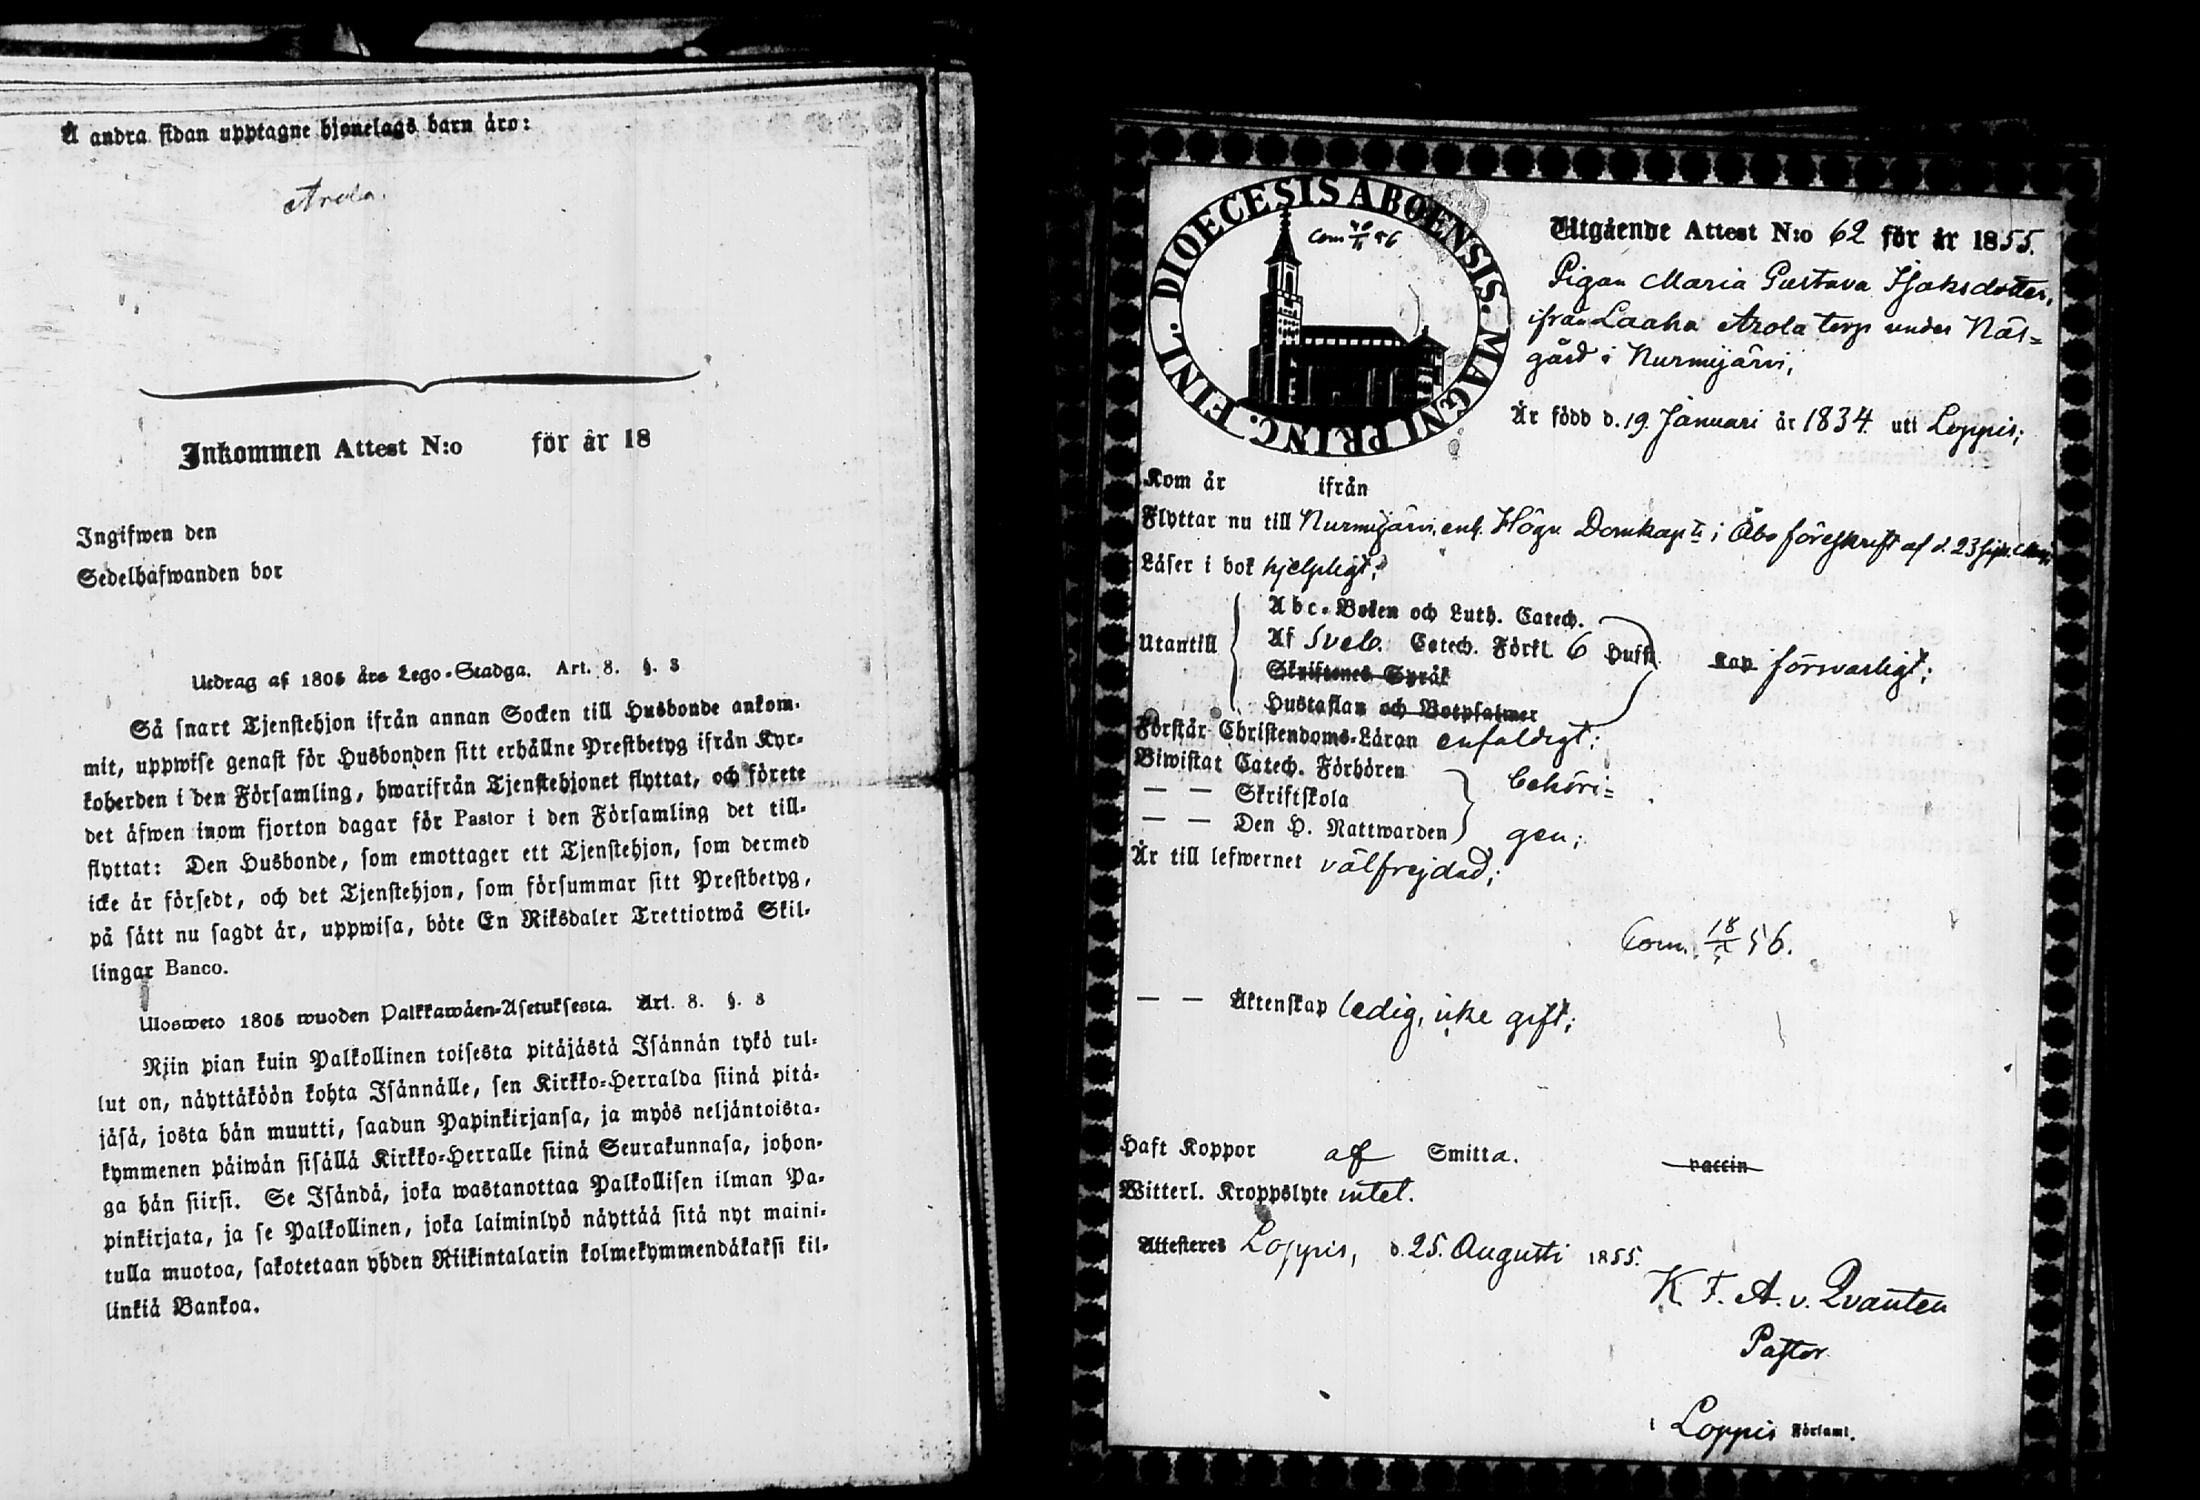 Å andra sidan upptagne hjonelags barn äro:
Arola.
Inkommen Attest N:o för år 18
Ingifwen den
Sedelhafwanden bor
Utdrag af 1805 års Lego-Stadga. Art. 8. §. 3
Så snart Tjenstehjon ifrån annan Socken till Husbonde ankom-
mit, uppwise genast för Husbonden sitt erhållne Prestbetyg ifrån Kyr-
koherden i den Församling, hwarifrån Tjenstehjonet flyttat, och förete
det äfwen inom fjorton dagar för Pastor i den Församling det till-
flyttat: Den Husbonde, som emottager ett Tjenstehjon, som dermed
icke är försedt, och det Tjenstehjon, som försummar sitt Prestbetyg,
på sätt nu sagdt är, uppwisa, böte En Riksdaler Trettiotwå Skil-
lingar Banco.
Ulosweto 1805 wuoden Palkkawäen-Asetuksesta. Art. 8. §. 3
Niin pian kuin Palkollinen toisesta pitäjästä Isännän tykö tul-
lut on, näyttäköön kohta Isännälle, sen Kirkko-Herralda siinä pitä-
jäsä, josta hän muutti, saadun Papinkirjansa, ja myös neljäntoista-
kymmenen päiwän sisällä Kirkko-Herralle siinä Seurakunnasa, johon-
ga hän siirsi. Se Isändä, joka wastanottaa Palkollisen ilman Pa-
pinkirjata, ja se Palkollinen, joka laiminlyö näyttää sitä nyt maini-
tulla muotoa, sakotetaan yhden Riikintalarin kolmekymmendäkaksi kil-
linkiä Bankoa.
DIOECESIS ABOENSIS. MAGNI PRINC. FINL.
Com 56
Utgående Attest N:o 62 för år 1855.
Pigan Maria Gustava Isaksdotter,
ifrån Laaha Arola torp under Näs=
gård i Nurmijärvi;
Är född d. 19. Januari år 1834 uti Loppis;
Kom år ifrån
Flyttar nu till Nurmijärvi, enl. Högv. Domkap:ts i Åbo föreskrift af d. 23
Läser i bok hjelpligt;
Utantill
Abc-Boken och Luth. Catech.
Af Sveb. Catech. Förkl. 6 Hufst. Kap försvarligt;
Skriftenes Språk
Hustaflan och Botpsalmer
Förstår Christendoms-Läran enfaldigt;
Biwistat Catech. Förhören
— — Skriftskola
behöri=
— — Den H. Nattwarden
gen;
Är till lefwernet välfrejdad;
Com. 18/5 56.
— — Äktenskap ledig, icke gift;
Haft Koppor af Smitta. vaccin
Witterl. Kroppslyte intet.
Attesteres Loppis, d. 25. Augusti 1855.
K. F. A. v. Qvanten
Pastor
i Loppis Församl.